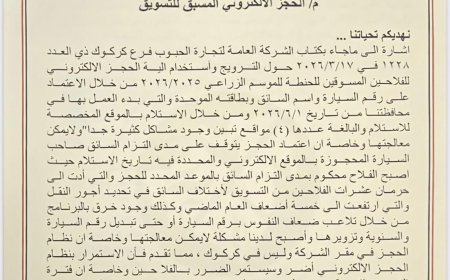 م/ الحجز الالكتروني المسبق للتسويق
نهديكم تحياتنا ...
اشارة الى ماجاء بكتاب الشركة العامة لتجارة الحبوب فرع كركوك ذي العدد
١٢٢٨ في ٢٠٢٦/٣/١٧ حول الترويج وأستخدام الية الحجز الالكتروني
للفلاحين المسوقين للحنطة للموسم الزراعي ٢٠٢٦/٢٠٢٥ من خلال الاعتماد
على رقم السيارة واسم السائق وبطاقته الموحدة والتي بدء العمل بها في
محافظتنا من تاريخ ٢٠٢٦/٦/١ ومن خلال الاستلام بالموقع المخصصة
للاستلام والبالغة عددها (٤) مواقع تبين وجود مشاكل كثيرة جدا"ولايمكن
معالجتها وخاصة ان اعتماد الحجز يتوقف على مدى التزام السائق صاحب
السيارة المحجوزة بالموقع الالكتروني والمحددة فيه تاريخ الاستلام حيث
اصبح الفلاح محكوم بمدى التزام السائق بالموعد المحدد للحجز والتي أدت الى
حرمان عشرات الفلاحين من التسويق لأختلاف السائق في تحديد أجور النقل
والتي ارتفعت الى خمسة أضعاف العام الماضي وكذلك وجود خرق بالبرنامج
من خلال تلاعب ضعاف النفوس برقم السيارة أو حتى تبديل رقم السيارة
والسنوية وتزويرها وأصبح لدينا مشكلة لايمكن معالجتها وخاصة ان نظام
الحجز في مقر الشركة وليس في كركوك ، مما تقدم فأن الاستمرار بنظام
الحجز الالكتروني أضر وسيستمر الضرر بالفلاحين وخاصة ان فترة